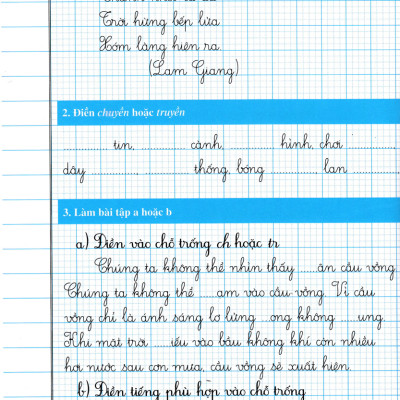 Trời hừng bếp lửa
Xóm làng hiện ra.
(Lam Giang)
2. Điền chuyền hoặc truyền
............... tin, ............... cành, ............... hình, chơi ...............
dây ............... thống, bóng ............... lan ...............
3. Làm bài tập a hoặc b
a) Điền vào chỗ trống ch hoặc tr
Chúng ta không thể nhìn thấy .....ân cầu vồng.
Chúng ta không thể .....ạm vào cầu vồng. Vì cầu
vồng chỉ là ánh sáng lơ lửng .....ong không .....ung.
Khi mặt trời .....iếu vào bầu không khí còn nhiều
hơi nước sau cơn mưa, cầu vồng sẽ xuất hiện.
b) Điền tiếng phù hợp vào chỗ trống